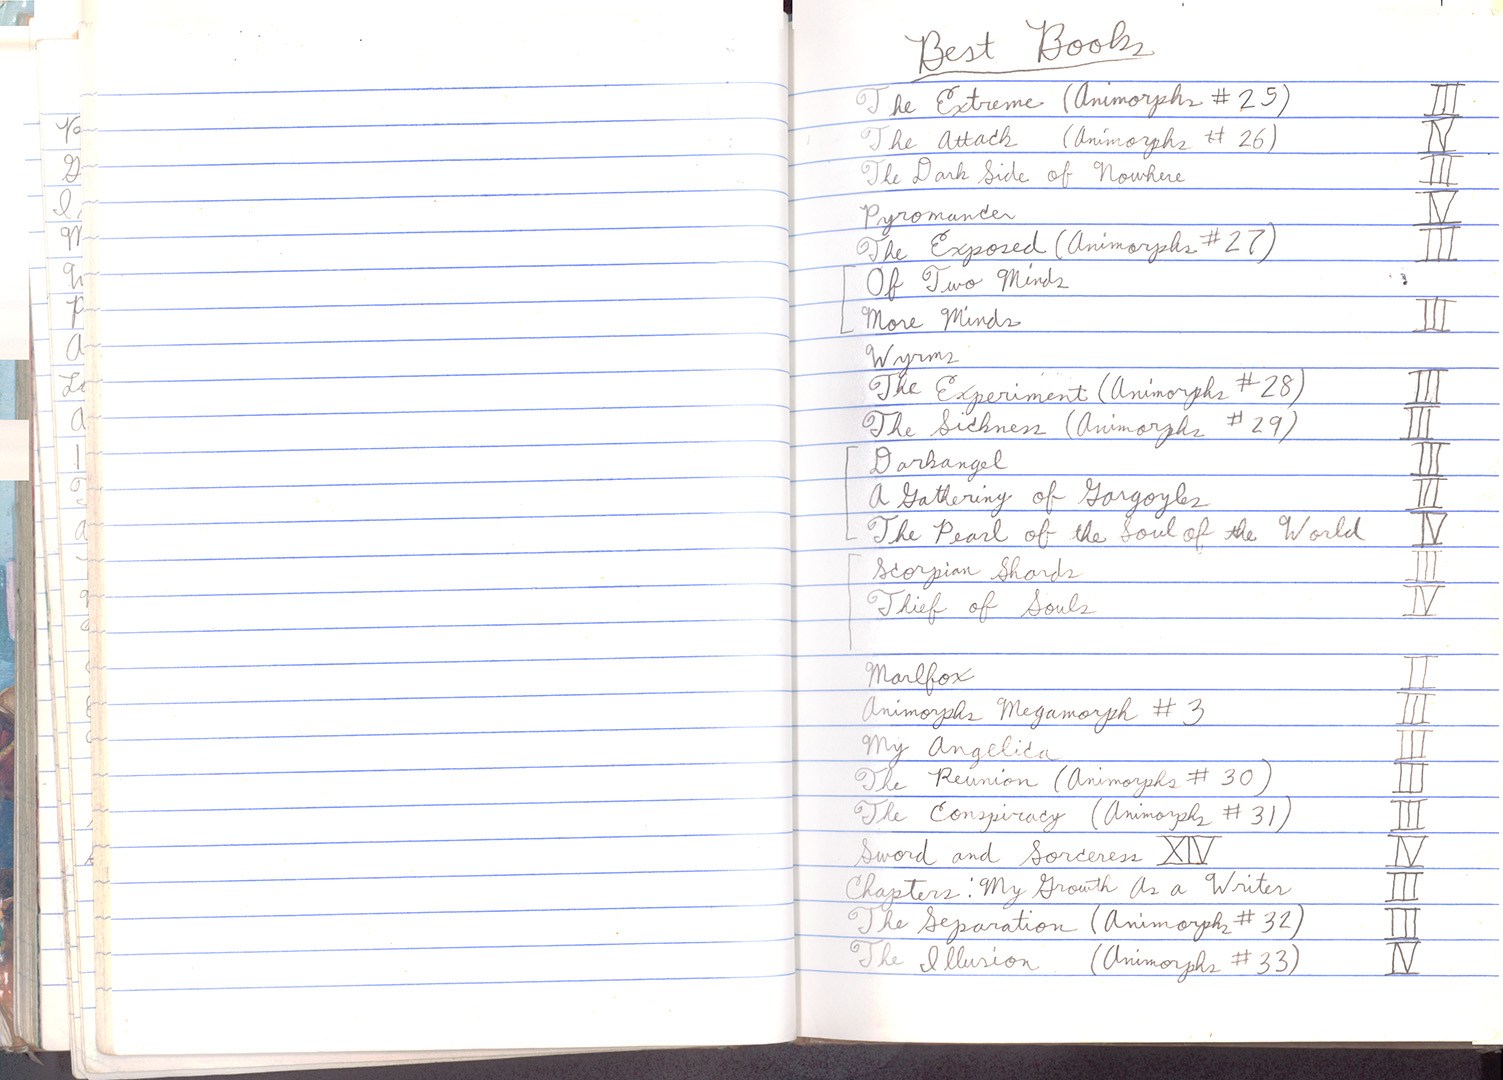 Best Books
The Extreme (Animorphs #25) III
The Attack (Animorphs #26) IV
The Dark Side of Nowhere III
Pyromancer V
The Exposed (Animorphs #27) III
Of Two Minds
More Minds III
Wyrms
The Experiment (Animorphs #28) III
The Sickness (Animorphs #29) III
Darkangel III
A Gathering of Gargoyles III
The Pearl of the Soul of the World IV
Scorpian Shards III
Thief of Souls IV
Marlfox II
Animorphs Megamorph #3 III
My Angelica III
The Reunion (Animorphs #30) III
The Conspiracy (Animorphs #31) III
Sword and Sorceress XIV IV
Chapters: My Growth As a Writer III
The Separation (Animorphs #32) III
The Illusion (Animorphs #33) IV